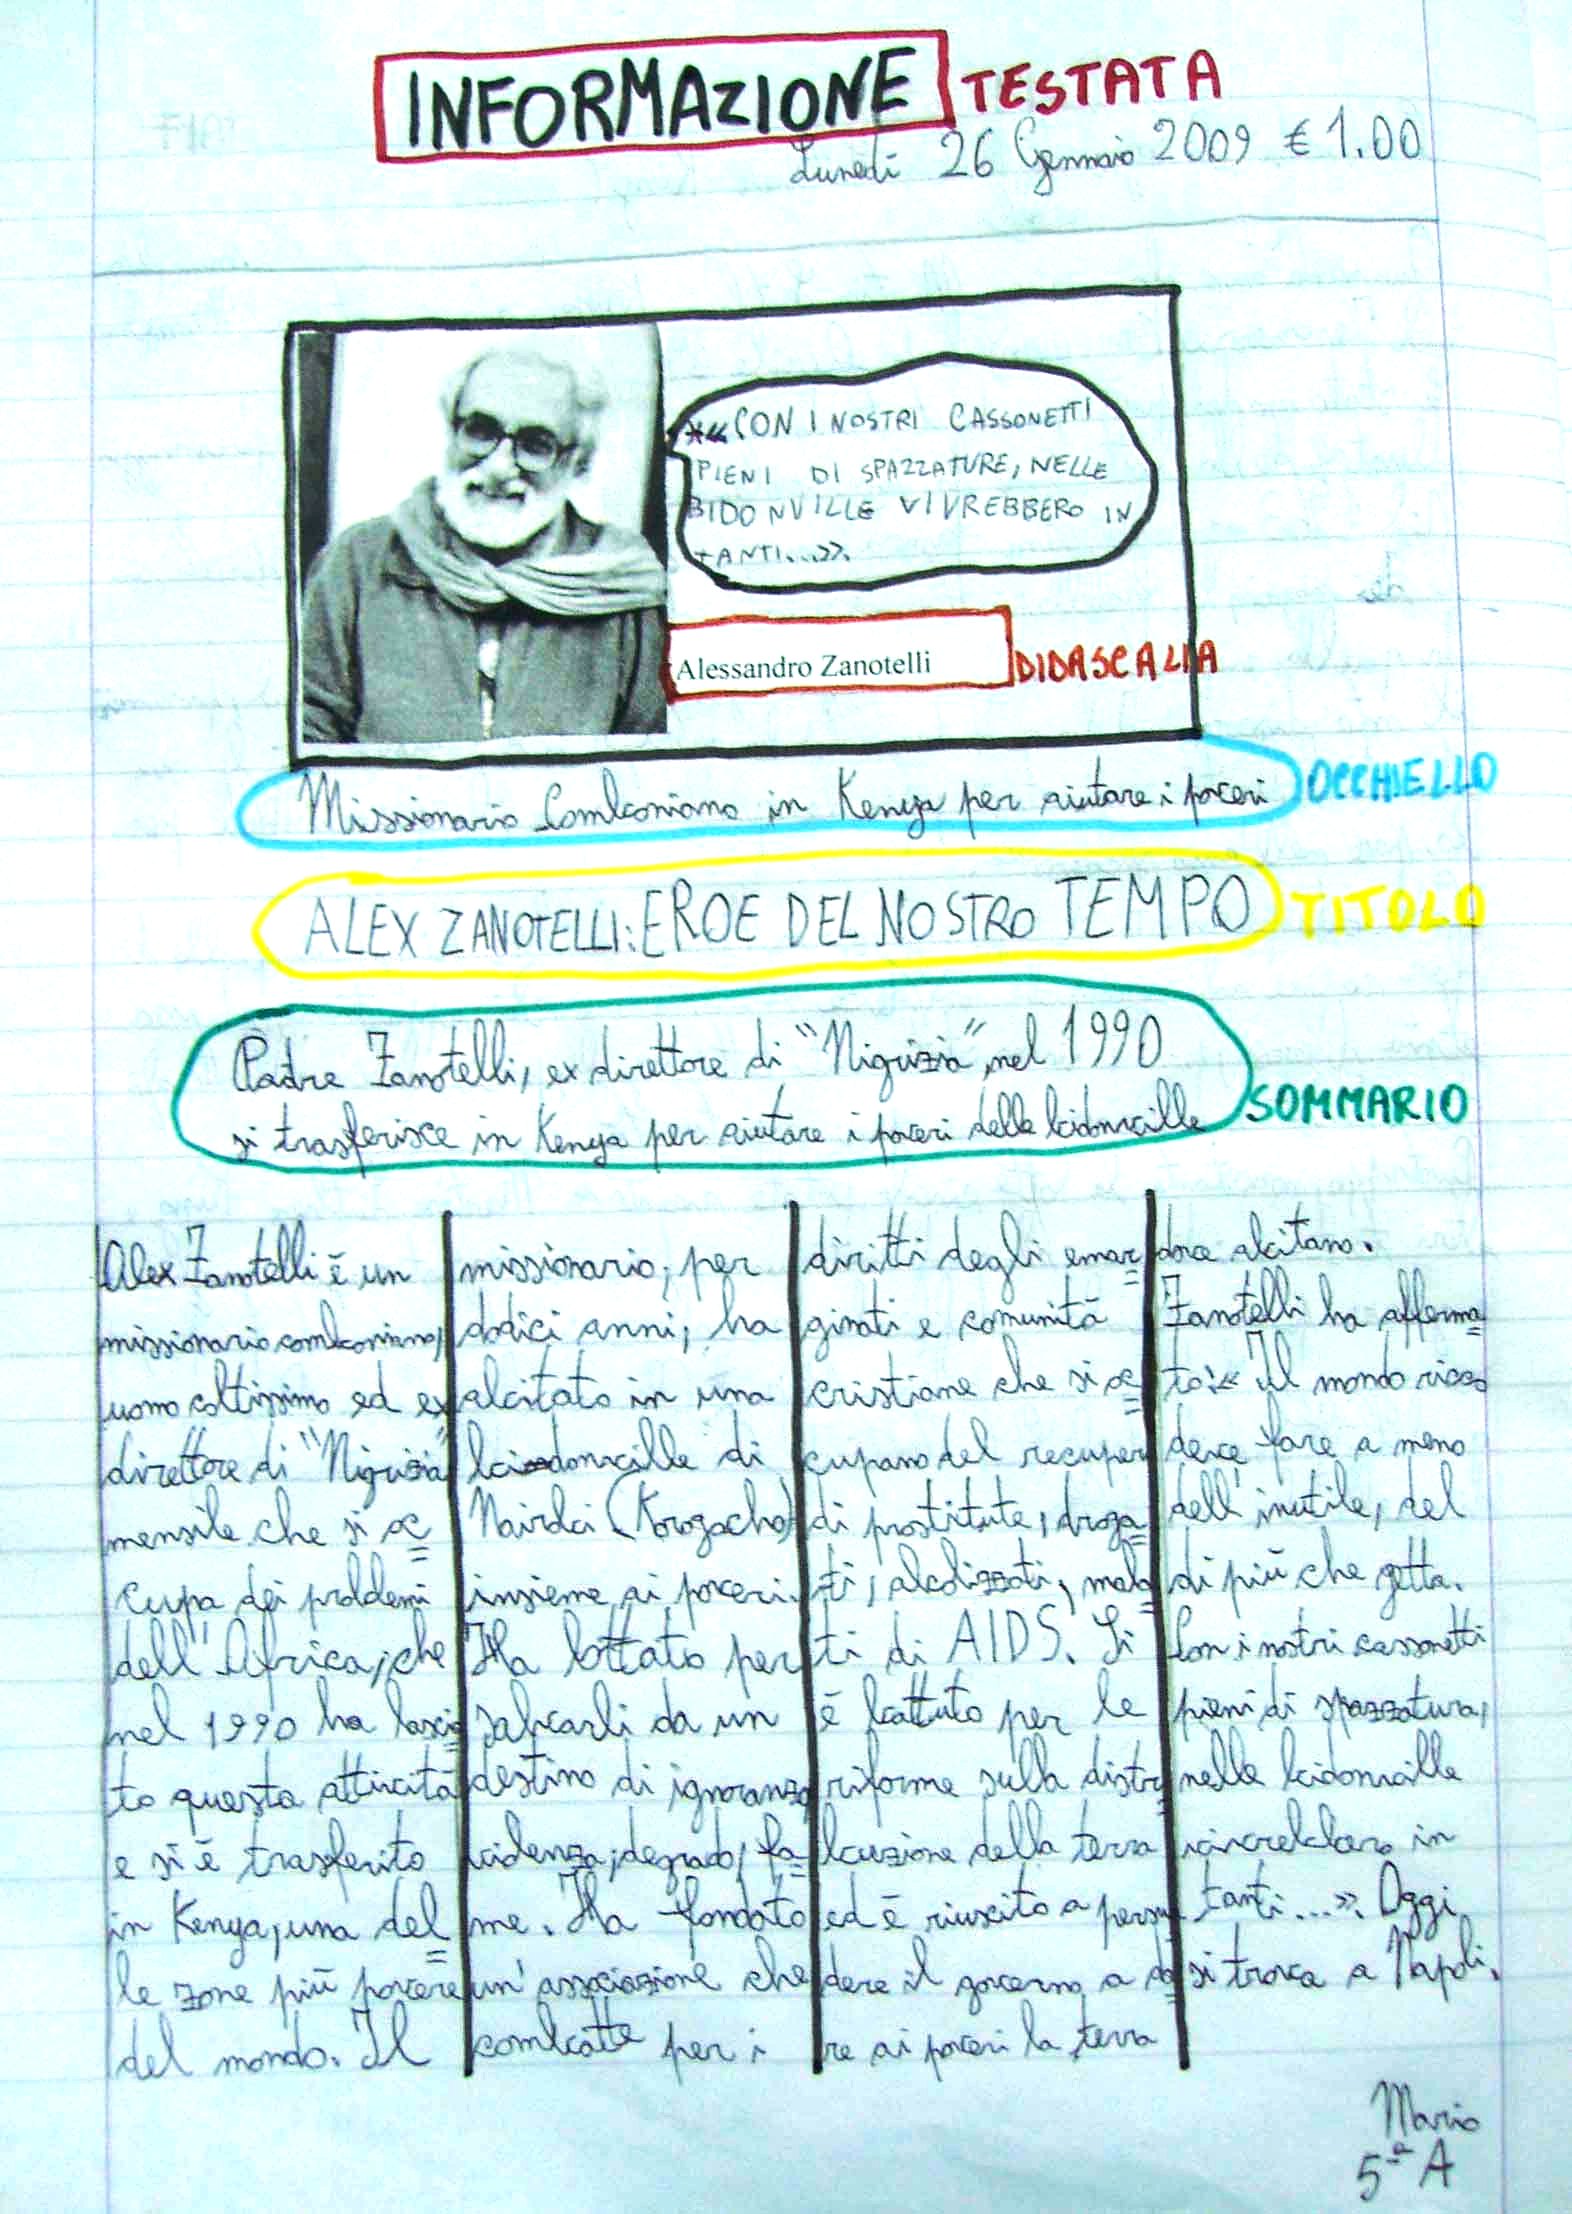 INFORMAZIONE TESTATA
Lunedì 26 Gennaio 2009 € 1.00
*«CON I NOSTRI CASSONETTI
PIENI DI SPAZZATURE, NELLE
BIDONVILLE VIVREBBERO IN
TANTI...».
Alessandro Zanotelli DIDASCALIA
Missionario Comboniano in Kenya per aiutare i poveri OCCHIELLO
ALEX ZANOTELLI: EROE DEL NOSTRO TEMPO TITOLO
Padre Zanotelli, ex direttore di "Nigrizia", nel 1990
si trasferisce in Kenya per aiutare i poveri delle bidonville
SOMMARIO
Alex Zanotelli è un
missionario comboniano,
uomo coltissimo ed ex
direttore di "Nigrizia"
mensile che si oc=
cupa dei problemi
dell'Africa, che
nel 1990 ha lascia=
to questa attività
e si è trasferito
in Kenya, una del=
le zone più povere
del mondo. Il
missionario, per
dodici anni, ha
abitato in una
bidonville di
Nairobi (Korogocho)
insieme ai poveri.
Ha lottato per
salvarli da un
destino di ignoranza
videnza, degrado, fa=
me. Ha fondato
un'associazione che
combatte per i
diritti degli emar=
ginati e comunità
cristiane che si oc=
cupano del recuper
di prostitute, droga=
ti, alcolizzati, mala=
ti di AIDS. Si
è battuto per le
riforme sulla distri=
buzione della terra
ed è riuscito a persua=
dere il governo a do=
re ai poveri la terra
dove abitano.
Zanotelli ha afferma=
to: «Il mondo ricco
deve fare a meno
dell'inutile, del
di più che getta.
Con i nostri cassonetti
pieni di spazzatura,
nelle bidonville
vivrebbero in
tanti...». Oggi
si trova a Napoli.
Mario
5ª A